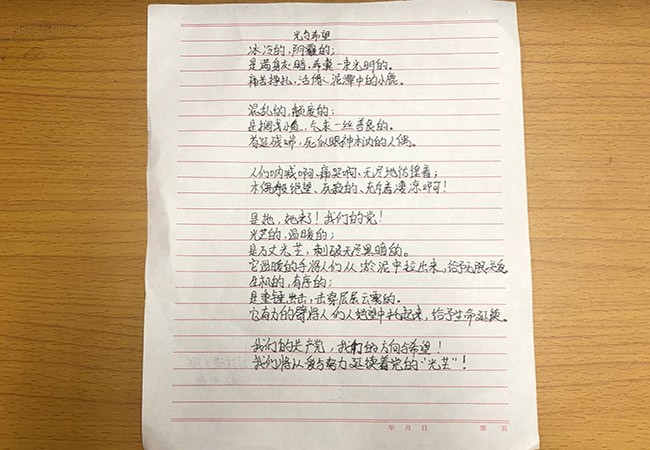 光与希望
冰冷的,阴霾的;
是满身灰暗,希冀一束光明的。
痛苦挣扎,活像入泥潭中的小鹿。
混乱的,颓废的;
是搁浅小鱼,乞求一丝善良的。
苟延残喘,死似眼神木讷的人偶。
人们呐喊啊、痛哭啊、无尽地彷徨着;
木偶般绝望、寂寞的、充斥着凄凉啊!
是她,她来了!我们的党!
光芒的,温暖的;
是万丈光芒,刺破无尽黑暗的。
它温暖的手将人们从淤泥中拉出来,给予无限关爱
生机的,有序的;
是重锤出击,击穿层层云霭的。
它有力的臂将人们从绝望中托起来,给予生命延续。
我们的共产党,我们的方向与希望!
我们将以爱与努力延续着党的“光芒”!
年 月 日 第 页